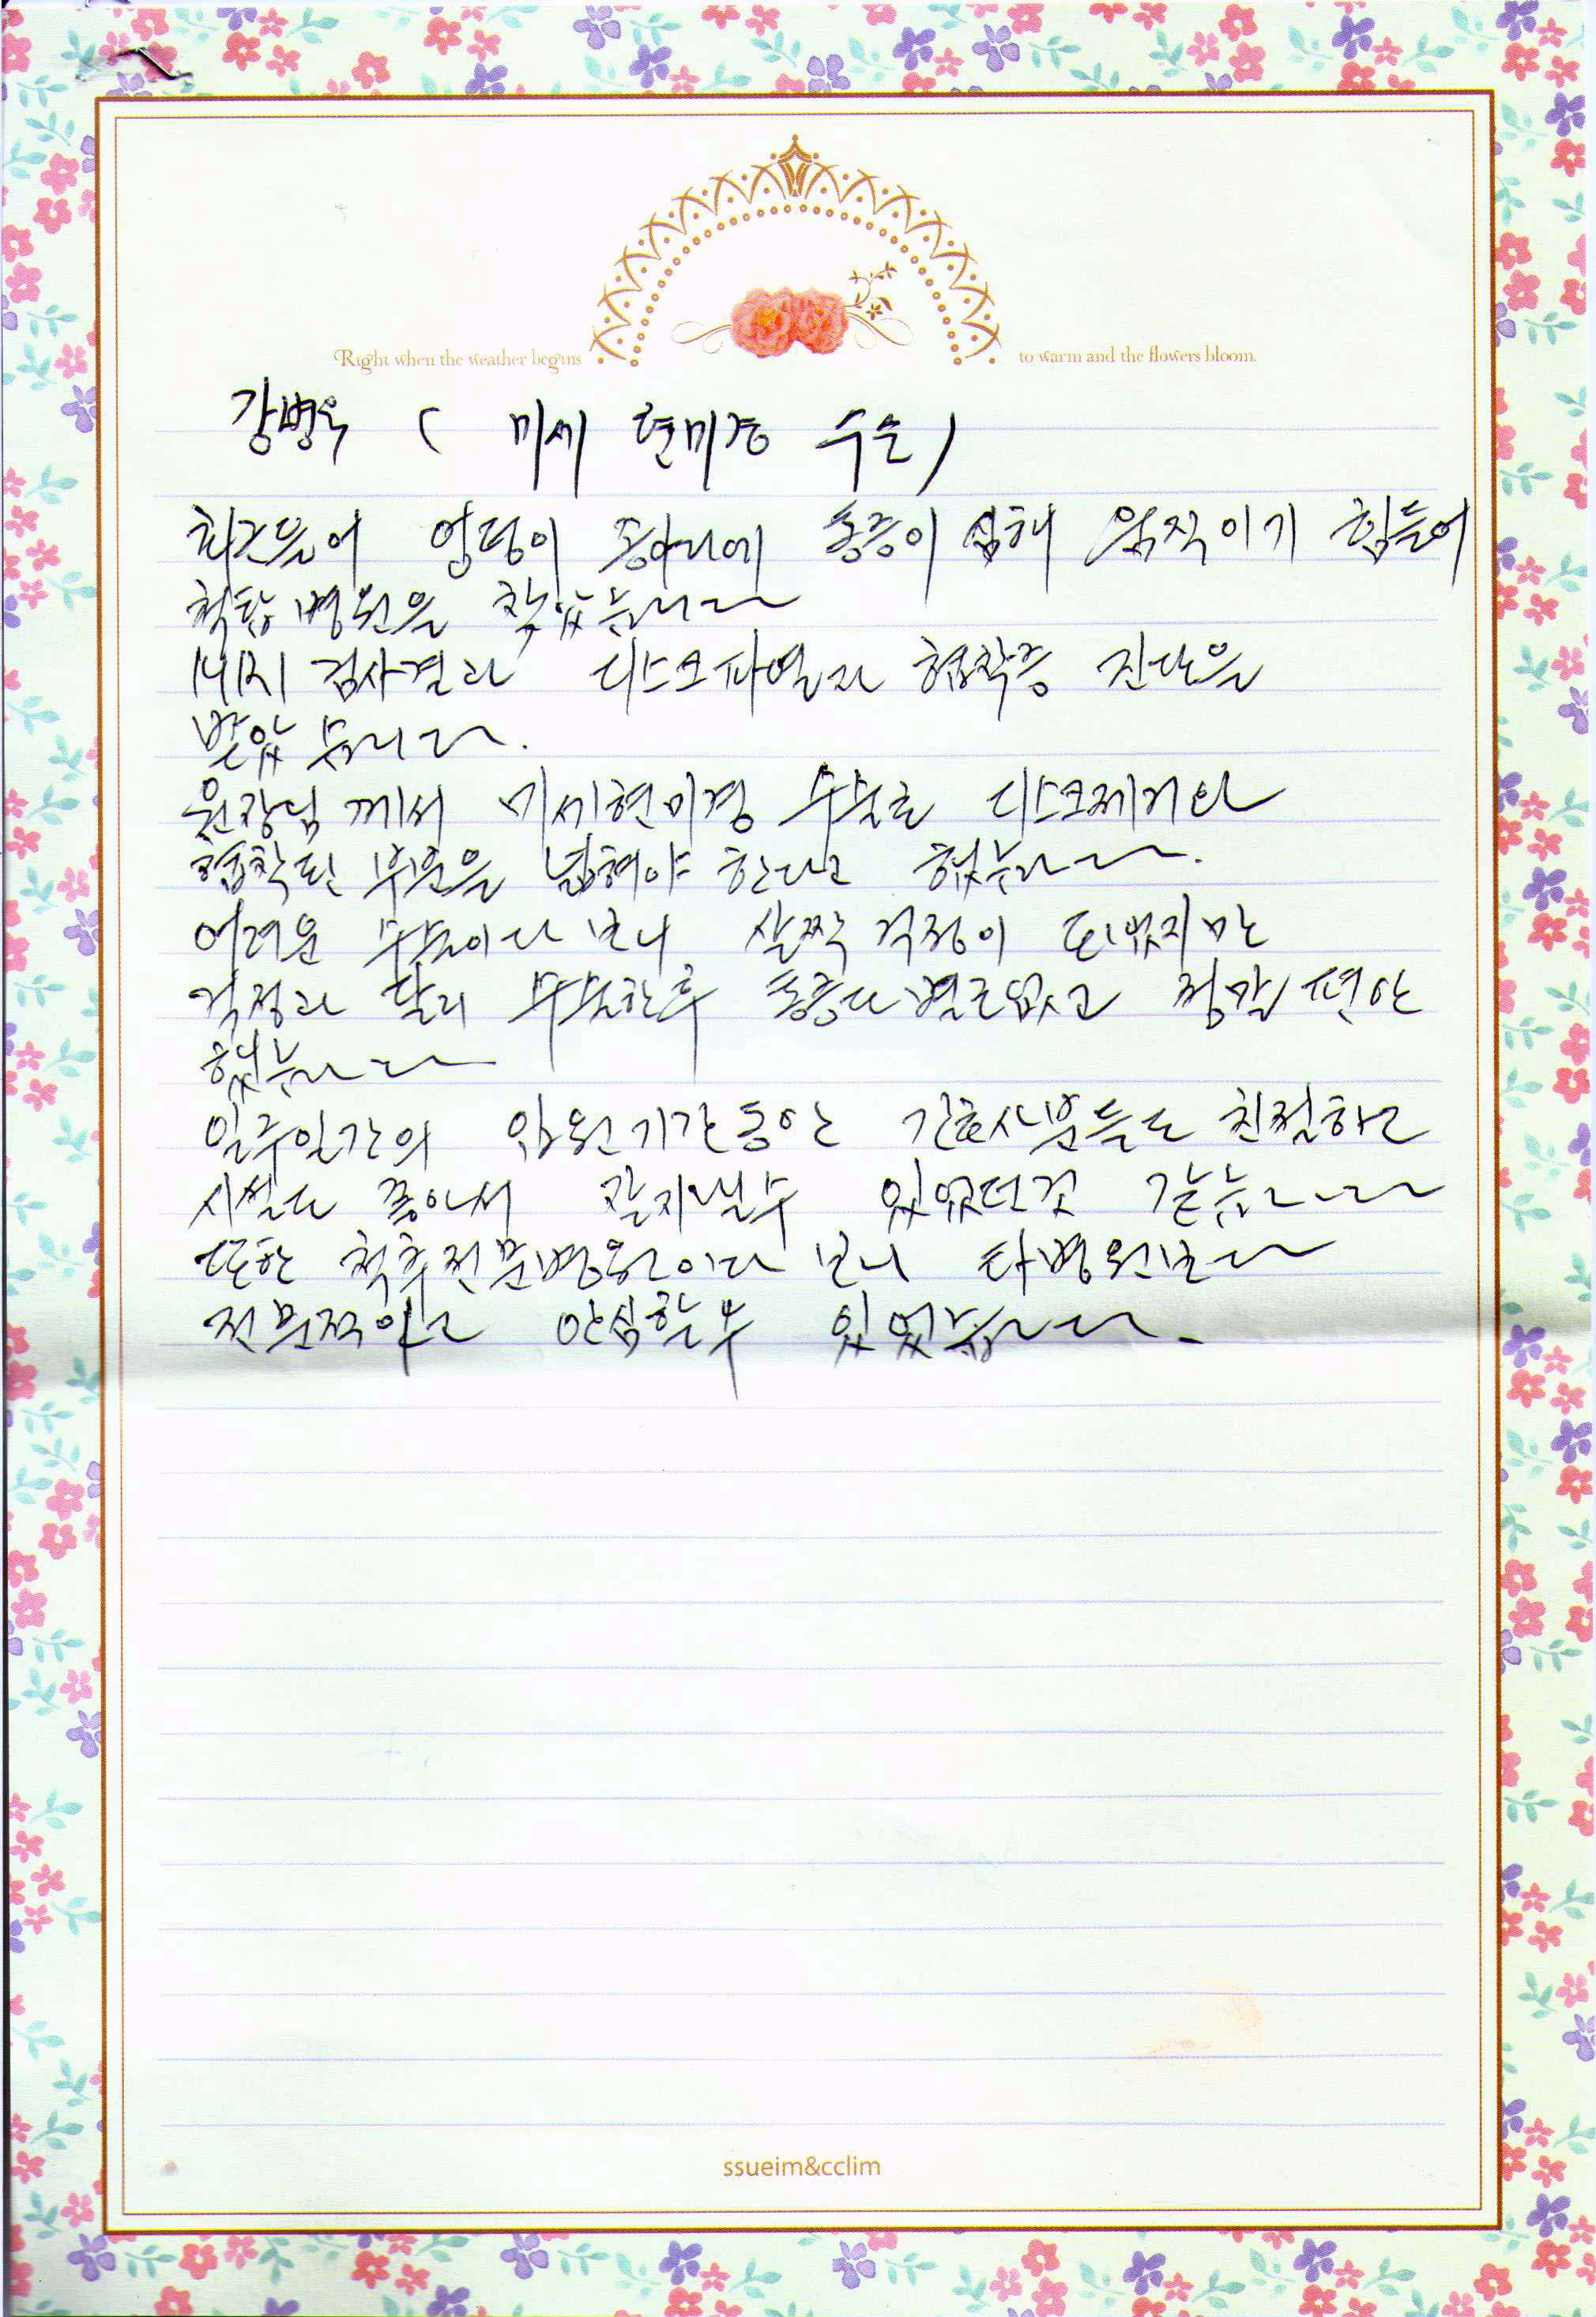 Right when the weather begins to warm and the flowers bloom.
강병욱 ( 미세 현미경 수술)
최근들어 엉덩이 종아리에 통증이 심해 움직이기 힘들어
척탑병원을 찾았습니다
MRI 검사결과 디스크파열과 협착증 진단을
받았습니다.
원장님께서 미세현미경 수술로 디스크제거와
협착된 부분을 넓혀야 한다고 했습니다.
어려운 수술이다 보니 살짝 걱정이 되었지만
걱정과 달리 수술한후 통증도 별로없고 정말 편안
했습니다
일주일간의 입원기간동안 간호사분들도 친절하고
시설도 좋아서 잘지낼수 있었던것 같습니다
또한 척추전문병원이다 보니 타병원보다
전문적이고 안심할수 있었습니다.
ssueim&cclim